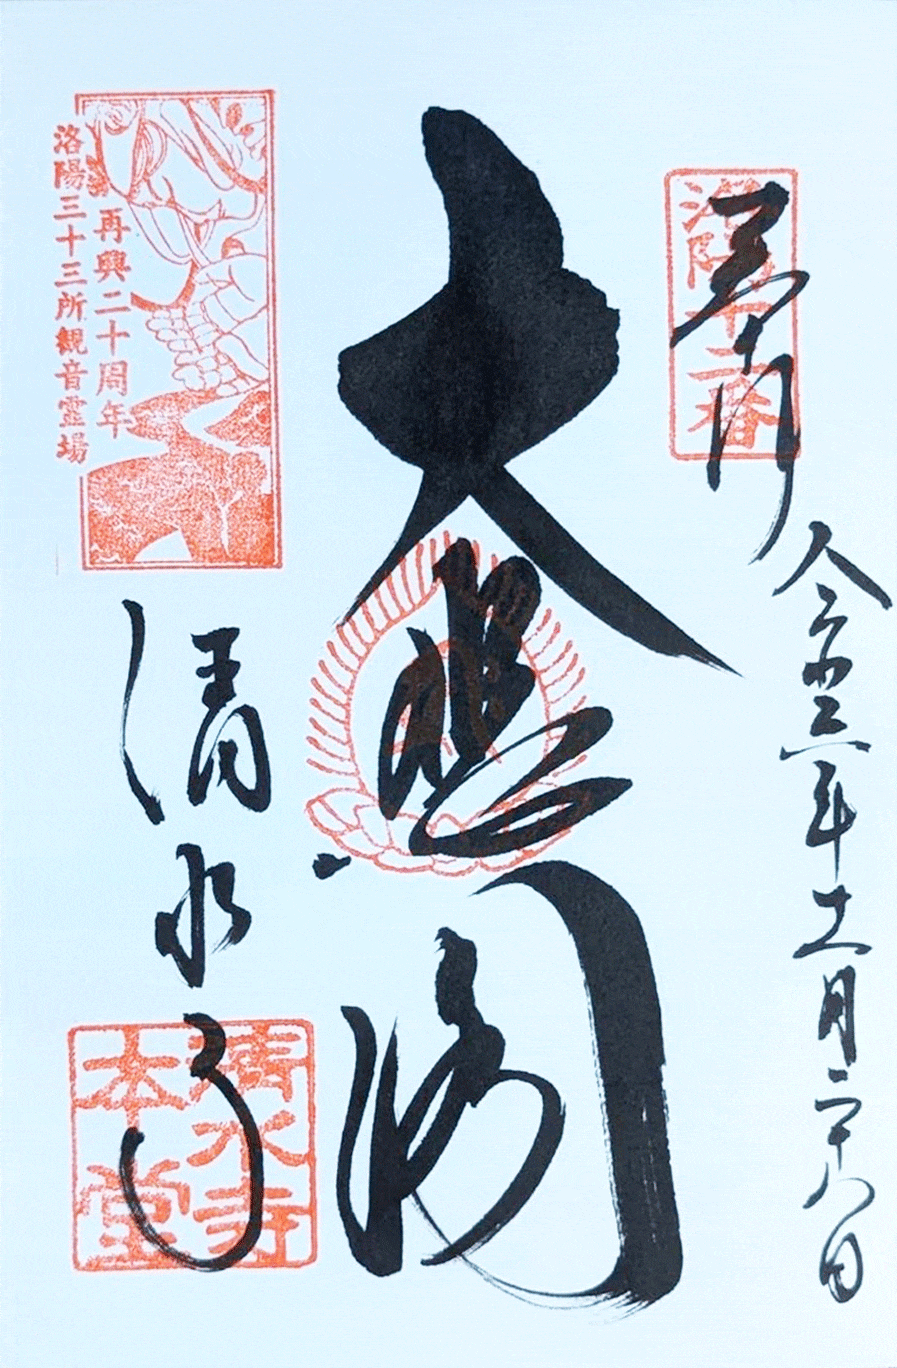 奉拝
洛陽十二番
令和六年十一月二十八日
大悲閣
再興二十周年
洛陽三十三所観音霊場
清水寺
清水寺
本堂